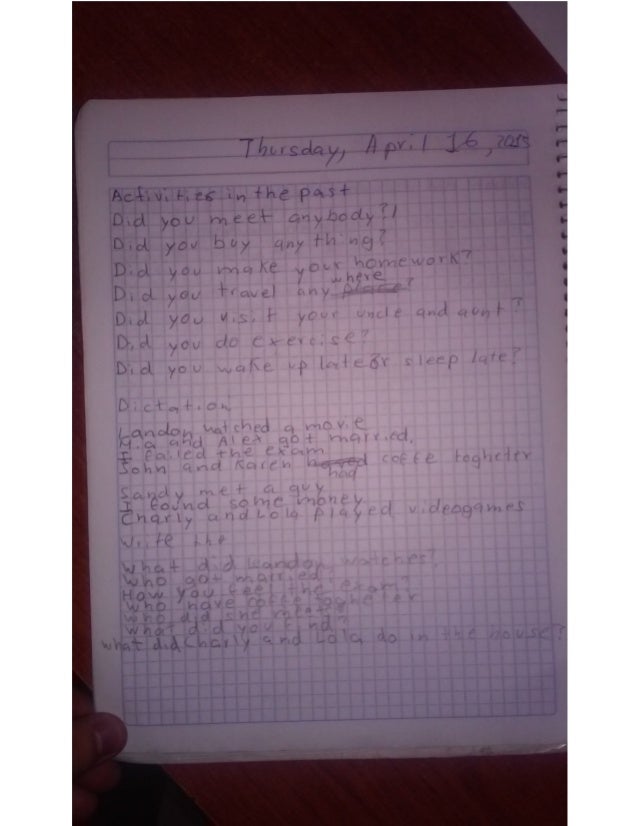 Thursday, April 16, 2015
Activities in the past
Did you meet anybody?
Did you buy any thing?
Did you make your homework?
Did you travel any where?
Did you visit your uncle and aunt?
Did you do exercise?
Did you wake up late or sleep late?
Dictation
Landon watched a movie
Mia and Alex got married.
I failed the exam
John and Karen had coffe togheter
Sandy met a guy
I found some money.
Charly and Lola played videogames
Write the
What did Landon watches?
Who got married?
How you feel the exam?
Who have coffe togheter
Who did she
What did you find?
What did Charly and Lola do in the house?